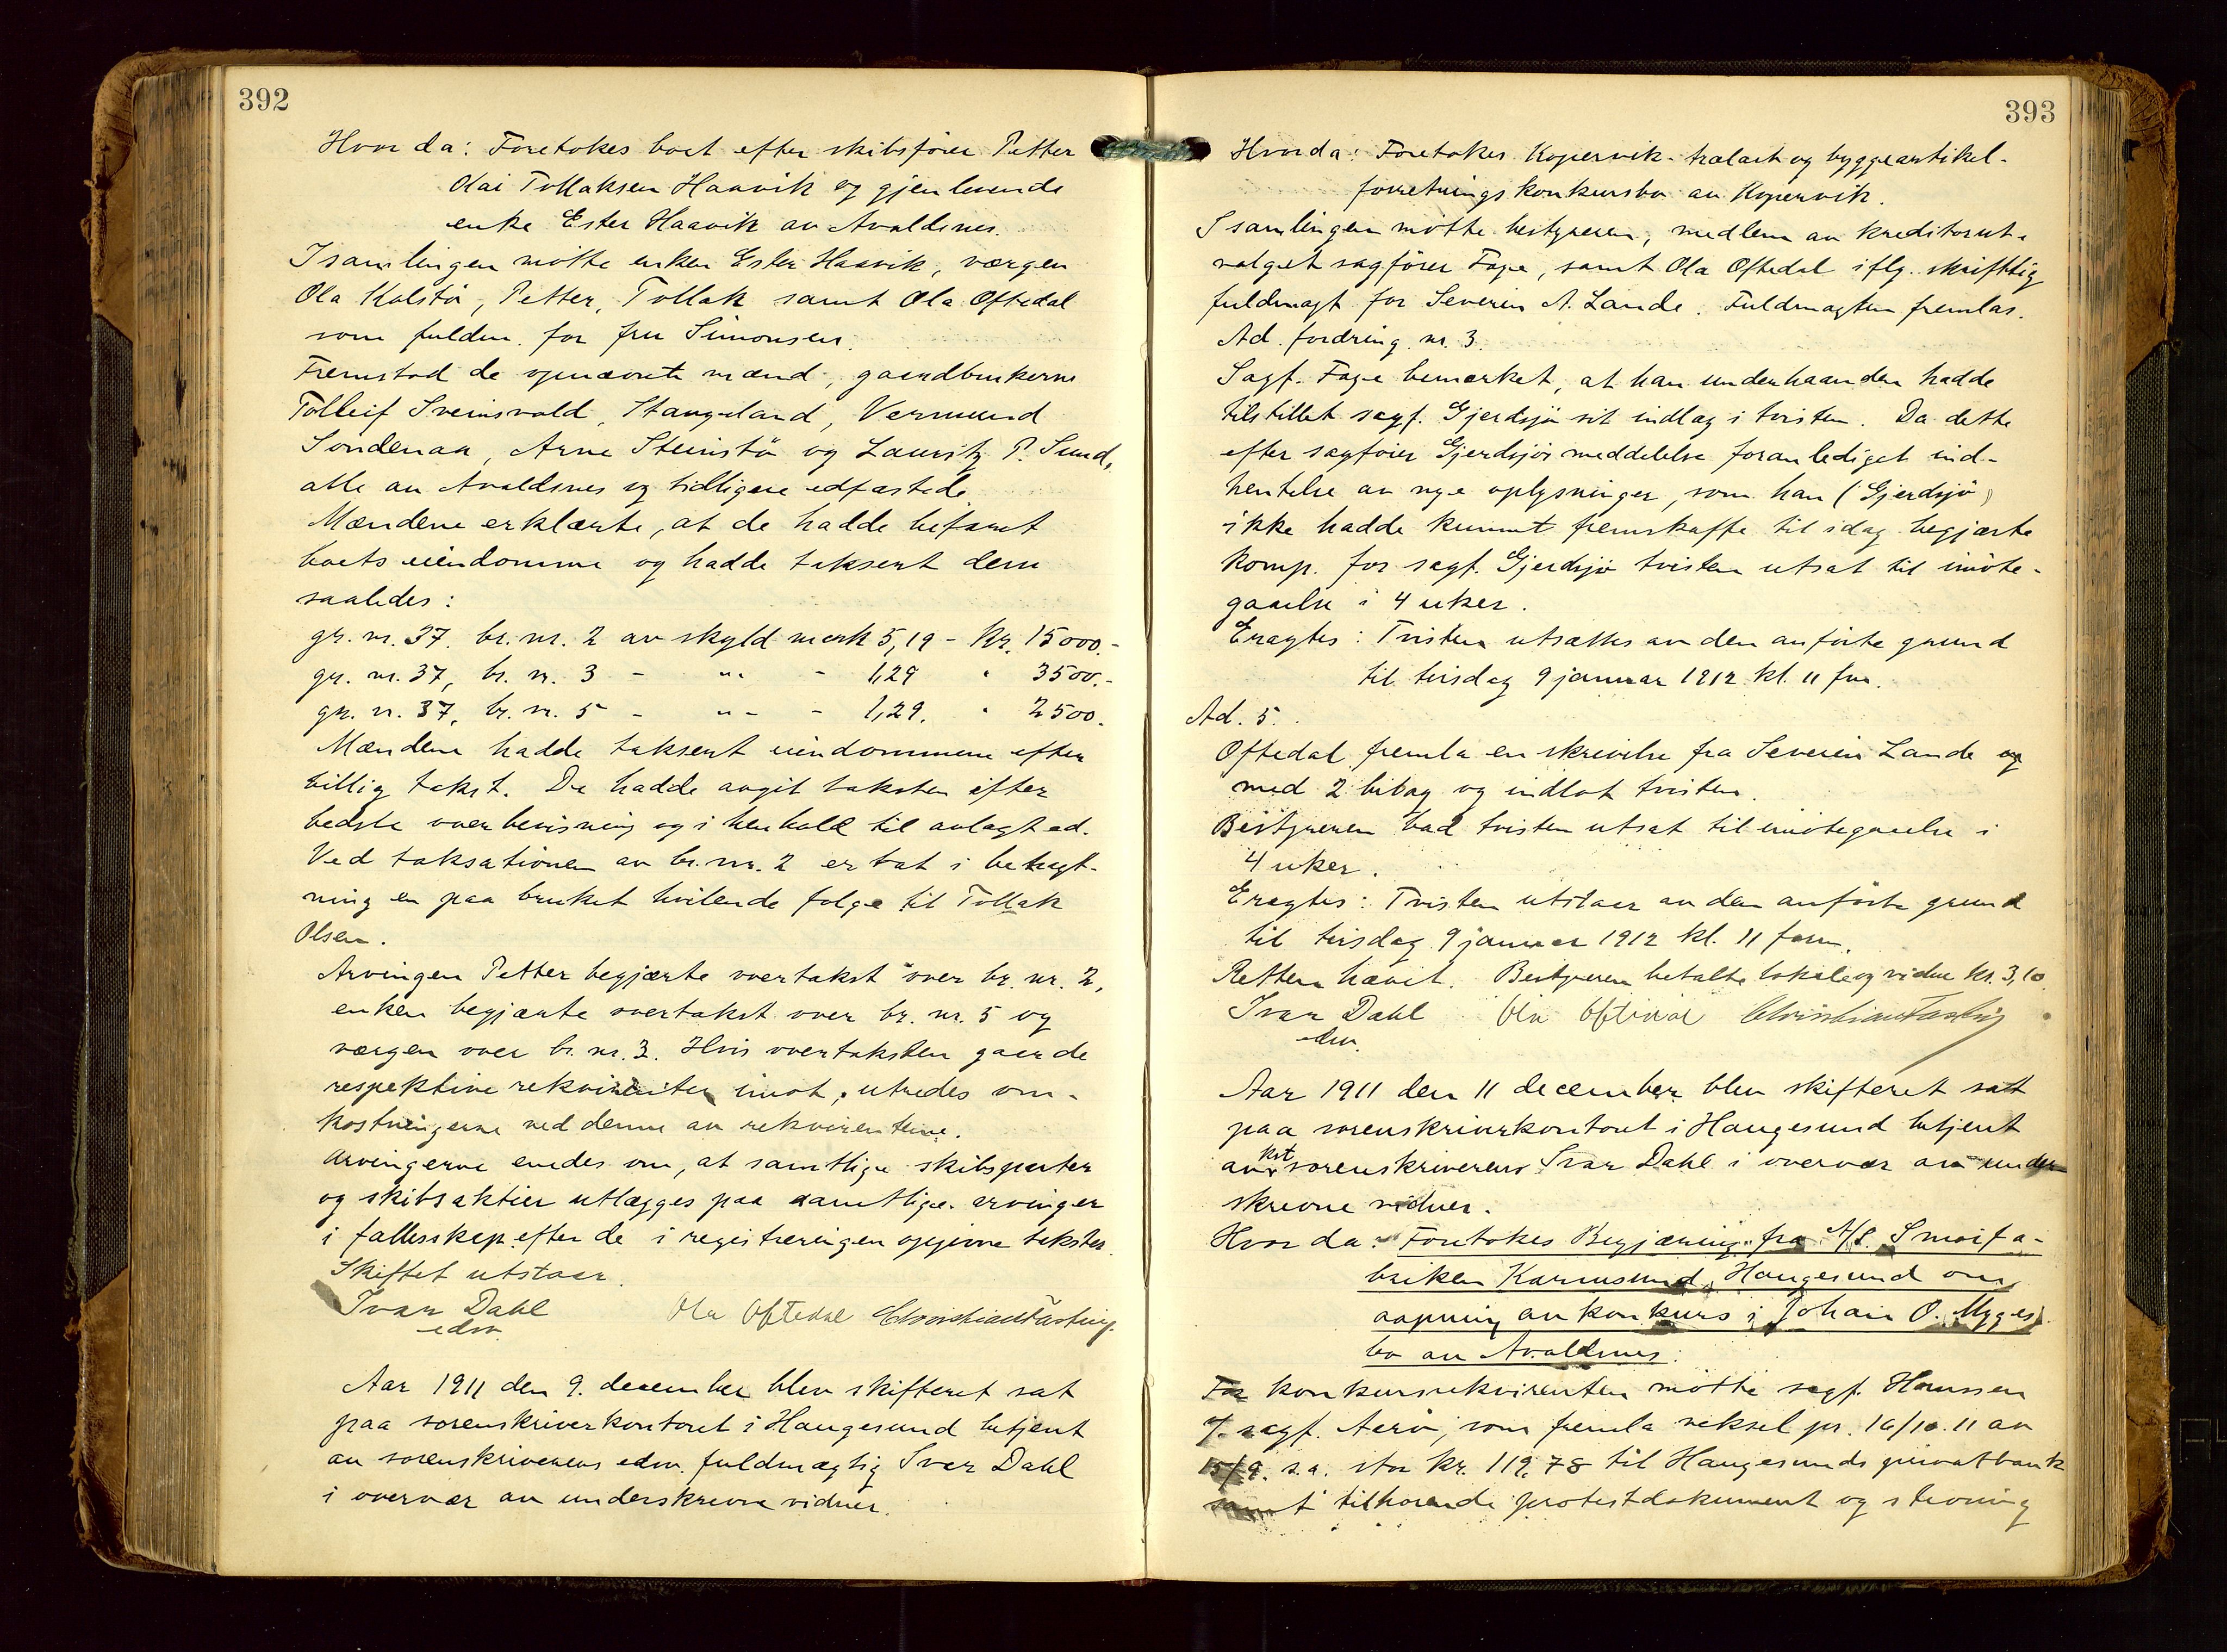 392
Hvor da: Foretokes boet efter skibsfører Petter
Olai Tollaksen Haavik og gjenlevende
enke Ester Haavik av Avaldsnes.
I samlingen møtte enken Ester Haavik, værgen
Ola Kolstø, Petter, Tollak samt Ola Oftedal
som fuldm. for fru Simonsen.
Fremstod de opnævnte mænd, gaardbrukerne
Tolleif Sveinsvold, Stangeland, Vermund
Søndenaa, Arne Steinstø og Lauritz P. Sund,
alle av Avaldsnes og tidligere edfæstede
Mændene erklærte, at de hadde befaret
boets eiendomme og hadde taksert dem
saaledes:
gr. nr. 37. br. nr. 2 av skyld merk 5,19 - kr. 15000.-
gr. nr. 37, br. nr. 3 - " - 1,29 " 3500.-
gr. nr. 37, br. nr. 5 - " - 1,29. " 2500.
Mændene hadde taksert eiendommene efter
billig takst. De hadde avgit taksten efter
bedste overbevisning og i henhold til avlagt ed.
Ved taksationen av br. nr. 2 er tat i betragt-
ning en paa bruket hvilende følge til Tollak
Olsen.
Arvingen Petter begjærte overtakst over br. nr. 2,
enken begjærte overtakst over br. nr. 5 og
værgen over br. nr. 3. Hvis overtaksten gaar de
respektive rekvirenter imot, utredes om-
kostningerne ved denne av rekvirentene.
Arvingerne enedes om, at samtlige skibsparter
og skibsaktier utlægges paa samtlige arvinger
i fællesskap efter de i registreringen opgivne takster.
Skiftet utstaar.
Ivar Dahl Ola Oftedal Christian Fasting
edsv.
Aar 1911 den 9. december blev skifteret sat
paa sorenskriverkontoret i Haugesund betjent
av sorenskriverens edsv. fuldmægtig Ivar Dahl
i overvær av underskrevne vidner.
393
Hvor da: Foretokes Kopervik trælast og byggeartikel-
forretnings konkursbo av Kopervik.
I samlingen møtte bestyreren, medlem av kreditorut-
valget sagfører Fage, samt Ola Oftedal iflg. skriftlig
fuldmagt for Severin A. Lande. Fuldmagten fremlas.
Ad. fordring nr. 3.
Sagf. Fage bemerket, at han underhaanden hadde
tilstillet sagf. Gjerdsjø sit indlæg i tvisten. Da dette
efter sagfører Gjerdsjøs meddelelse foranlediget ind-
hentelse av nye oplysninger, som han (Gjerdsjø)
ikke hadde kunnet fremskaffe til idag begjærte
komp. for sagf. Gjerdsjø tvisten utsat til imøte-
gaaelse i 4 uker.
Eragtes: Tvisten utsættes av den anførte grund
til tirsdag 9 januar 1912 kl. 11 fm.
Ad. 5.
Oftedal fremla en skrivelse fra Severin Lande og
med 2 bilag og indlot tvisten.
Bestyreren bad tvisten utsat til imøtegaaelse i
4 uker.
Eragtes: Tvisten utstaar av den anførte grund
til tirsdag 9 januar 1912 kl. 11 form.
Retten hævet. Bestyreren betalte lokale og vidne kr. 3,10
Ivar Dahl Ola Oftedal Christian Fasting
edsv.
Aar 1911 den 11 december blev skifteret satt
paa sorenskriverkontoret i Haugesund betjent
av kst sorenskriverens Ivar Dahl i overvær av under
skrevne vidner.
Hvor da: Foretokes Begjæring fra A/S. Smørfa-
briken Karmsund, Haugesund om
aapning av konkurs i Johan O. Mygges
bo av Avaldsnes.
For konkursrekvirenten møtte sagf. Hanssen
f. sagf. Aarø, som fremla veksel pr. 16/10.11 av
15/9. s.a. stor kr. 119,78 til Haugesunds privatbank
samt tilhørende protestdokument og stevning